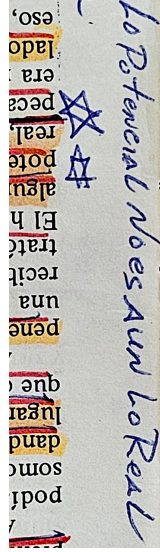 Lo Potencial No es Aun Lo Real
podí
somo
dand
lugar
que
pene
una
recib
trató
El h
algu
pote
real,
peca
era
lado
eso,